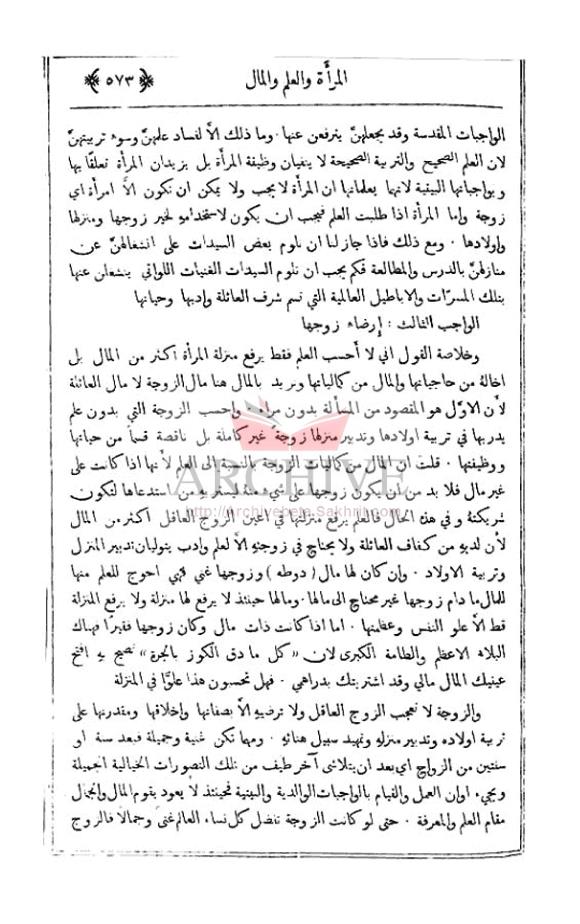 المرأة والعلم والمال
﴿ ٥٧٣ ﴾
الواجبات المقدسة وقد يجعلهنَّ يترفعن عنها . وما ذلك الاَّ لفساد علمهنَّ وسوء تربيتهنَّ
لان العلم الصحيح والتربية الصحيحة لا ينفيان وظيفة المرأة بل يزيدان المرأة تعلقًا بها
وبواجباتها البيتية لانها يعلمانها ان المرأة لا يجب ولا يمكن ان تكون الاَّ امرأة اي
زوجة واما المرأة اذا طلبت العلم فيجب ان يكون لاستخدامهِ لخير زوجها ومنزلها
واولادها . ومع ذلك فاذا جاز لنا ان نلوم بعض السيدات على اشتغالهنَّ عن
منازلهنَّ بالدرس والمطالعة فكم يجب ان نلوم السيدات الغنيات اللواتي ينشغلن عنها
بتلك المسرّات والاباطيل العالمية التي تسم شرف العائلة وادبها وحياتها
الواجب الثالث : إرضاء زوجها
وخلاصة القول اني لا أحسب العلم فقط يرفع منزلة المرأة اكثر من المال بل
اخالهُ من حاجياتها والمال من كمالياتها ونريد بالمال هنا مال الزوجة لا مال العائلة
لأن الاوّل هو المقصود من المسألة بدون مراء . واحسب الزوجة التي بدون علم
يدربها في تربية اولادها وتدبير منزلها زوجة غير كاملة بل ناقصة قسماً من حياتها
ووظيفتها . قلت ان المال من كماليات الزوجة بالنسبة الى العلم لأنها اذا كانت على
غير مال فلا بد من ان يكون زوجها على شيء منهُ ليستر بهِ من استدعاها لتكون
شريكتهُ وفي هذه الحال فالعلم يرفع منزلتها في اعين الزوج العاقل اكثر من المال
لأن لديهِ من كفاف العائلة ولا يحتاج في زوجتهِ الاَّ لعلم وادب يتوليان تدبير المنزل
وتربية الاولاد . وإن كان لها مال ( دوطه ) وزوجها غني فهي احوج للعلم منها
للمال ما دام زوجها غير محتاج الى مالها . ومالها حينئذ لا يرفع لها منزلة ولا يرفع المنزلة
قط الاَّ علو النفس وعظمتها . اما اذا كانت ذات مال وكان زوجها فقيرًا فهناك
البلاء الاعظم والطامة الكبرى لان « كل ما دق الكوز بالجرة » تصيح بهِ افتح
عينيك المال مالي وقد اشتريتك بدراهمي . فهل تحسبون هذا علوًّا في المنزلة
والزوجة لا تعجب الزوج العاقل ولا ترضيهِ الاَّ بصفاتها وإخلاقها ومقدرتها على
تربية اولاده وتدبير منزلهِ وتمهيد سبيل هنائهِ . ومهما تكن غنية وجميلة فبعد سنة او
سنتين من الزواج اي بعد ان يتلاشى آخر طيف من تلك التصورات الخيالية الجميلة
ويجيء اوان العمل والقيام بالواجبات الوالدية والبيتية فحينئذ لا يعود يقوم المال والجمال
مقام العلم والمعرفة . حتى لو كانت الزوجة تفضل كل نساء العالم غنىً وجمالاً فالزوج
ARCHIVE
http://Archivebeta.Sakhrit.com